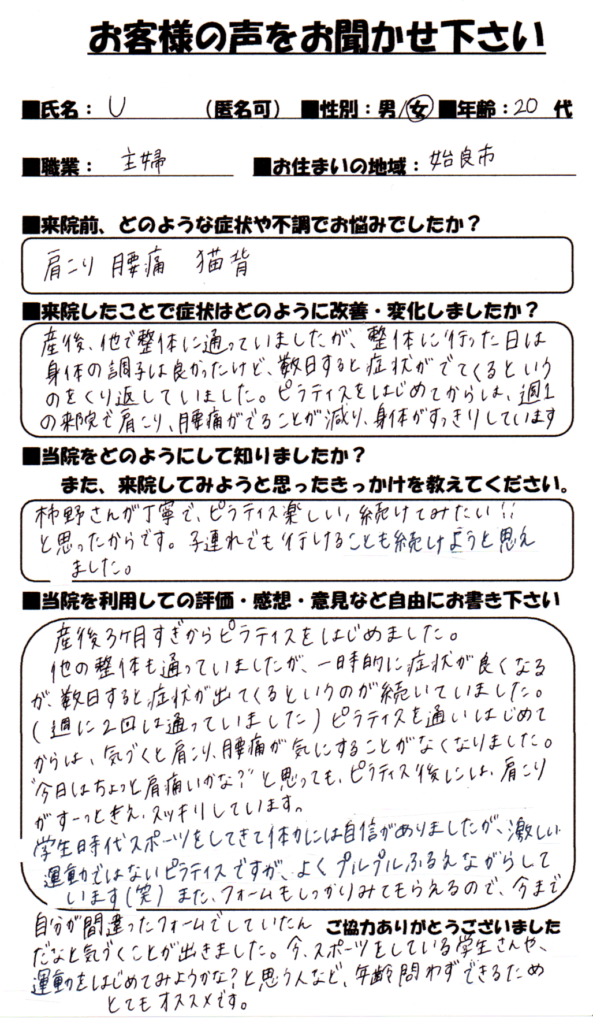 お客様の声をお聞かせ下さい
■氏名： U （匿名可） ■性別：男/女 ■年齢：20 代
■職業： 主婦 ■お住まいの地域： 姶良市
■来院前、どのような症状や不調でお悩みでしたか？
肩こり 腰痛 猫背
■来院したことで症状はどのように改善・変化しましたか？
産後、他で整体に通っていましたが、整体に行った日は
身体の調子は良かったけど、数日すると症状がでてくるという
のをくり返していました。ピラティスをはじめてからは、週1
の来院で肩こり、腰痛がでることが減り、身体がすっきりしています
■当院をどのようにして知りましたか？
また、来院してみようと思ったきっかけを教えてください。
柿野さんが丁寧で、ピラティス楽しい,続けてみたい!!
と思ったからです。子連れでも行けることも続けようと思え
ました。
■当院を利用しての評価・感想・意見など自由にお書き下さい
産後3ケ月すぎからピラティスをはじめました。
他の整体も通っていましたが、一時的に症状が良くなる
が、数日すると症状が出てくるというのが続いていました。
(週に2回は通っていました)ピラティスを通いはじめて
からは、気づくと肩こり、腰痛が気にすることがなくなりました。
"今日はちょっと肩痛いかな?"と思っても、ピラティス後には、肩こり
がすーっときえ、スッキリしています。
学生時代スポーツをしてきて体力には自信がありましたが、激しい
運動ではないピラティスですが、よくプルプルふるえながらして
います(笑) また、フォームもしっかりみてもらえるので、今まで
自分が間違ったフォームでしていたん
ご協力ありがとうございました
だなと気づくことが出きました。今、スポーツをしている学生さんや、
運動をはじめてみようかな?と思う人など、年齢問わずできるため
とてもオススメです。